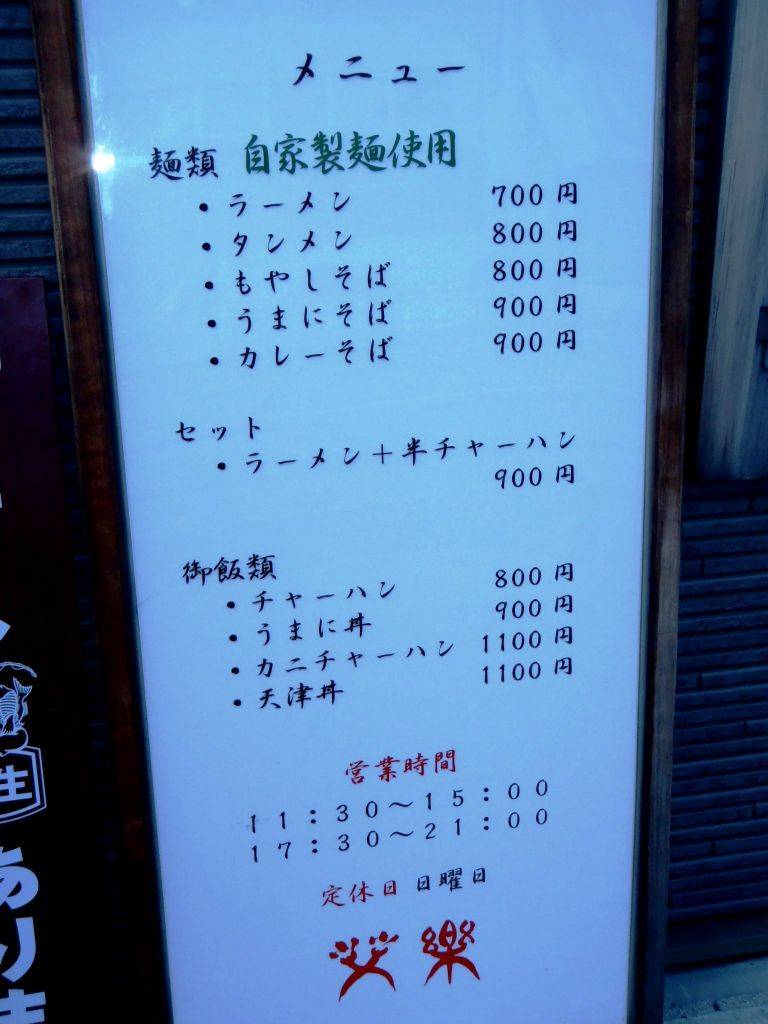 メニュー
麺類 自家製麺使用
・ラーメン 700円
・タンメン 800円
・もやしそば 800円
・うまにそば 900円
・カレーそば 900円
セット
・ラーメン＋半チャーハン
900円
御飯類
・チャーハン 800円
・うまに丼 900円
・カニチャーハン 1100円
・天津丼 1100円
営業時間
11：30～15：00
17：30～21：00
定休日 日曜日
艾樂
生
あります